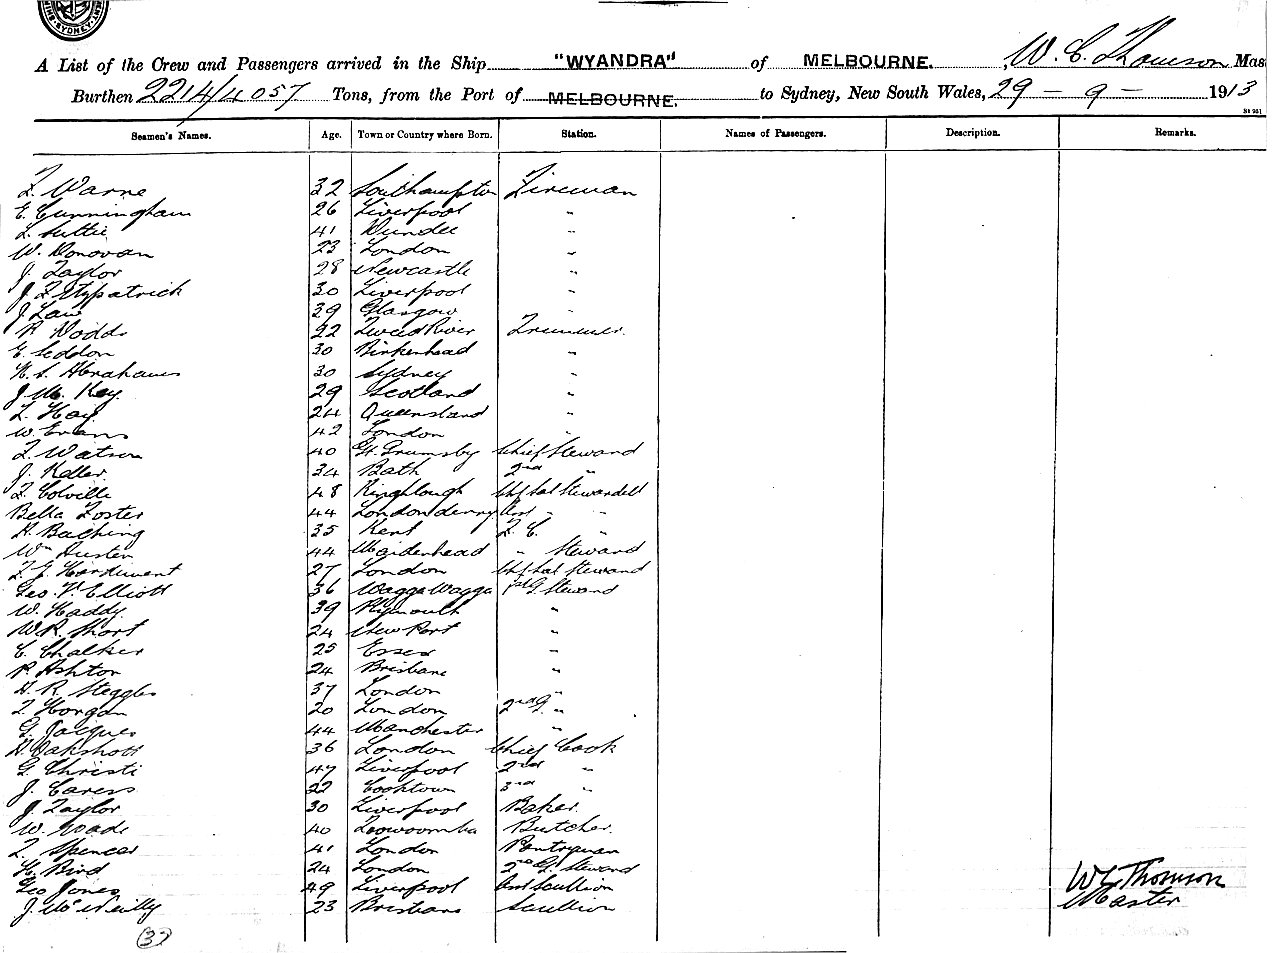 A List of the Crew and Passengers arrived in the Ship "WYANDRA" of MELBOURNE, W. C. Thomson Mas
Burthen 2214/4057 Tons, from the Port of MELBOURNE. to Sydney, New South Wales, 29 - 9 - 1913
Seamen's Names. Age. Town or Country where Born. Station. Names of Passengers. Description. Remarks.
F. Warne 32 Southampton Fireman
E. Cunningham 26 Liverpool "
F. Suttie 41 Dundee "
W. Donovan 23 London "
J. Taylor 28 Newcastle "
J. Fitzpatrick 30 Liverpool "
J. Law 39 Glasgow "
R. Dodds 22 Tweed River Trimmer.
E. Seddon 30 Birkenhead "
H. S. Abrahams 30 Sydney "
J. Mc Kay 29 Scotland "
F. Hay 24 Queensland "
W Evans 42 London "
F. Watson 40 Gt. Grimsby Chief Steward
J. Keller. 34 Bath 2nd "
F. Colville 48 Chf Sal Stewardess
Bella Foster 44 Londonderry Asst " "
35 Kent F. C. "
Wm Austen 44 Maidenhead " Steward
F. J. Hardiment 27 London Chf Sal Steward
Geo. V. Elliott 36 Wagga Wagga 1st G. Steward
W. Haddy 39 Plymouth "
W R. Short 24 New Port "
C. Chalker 25 Essex "
R. Ashton 24 Brisbane "
H. R. Steggles 37 London "
F. Horgan 20 London 2nd G. "
G. Jacques 44 Manchester "
H. Oakshott 36 London Chief Cook
G. Christi 47 Liverpool 2nd "
J. Caress 22 Cooktown 3rd "
J. Taylor 30 Liverpool Baker.
W. Woads 40 Toowoomba Butcher.
F. Spencer 41 London Pantryman
H. Bird 24 London 2nd G. Steward
Geo Jones 49 Liverpool Asst Scullion
J. Mc Neilly 23 Brisbane Scullion
W C Thomson
Master
(37)